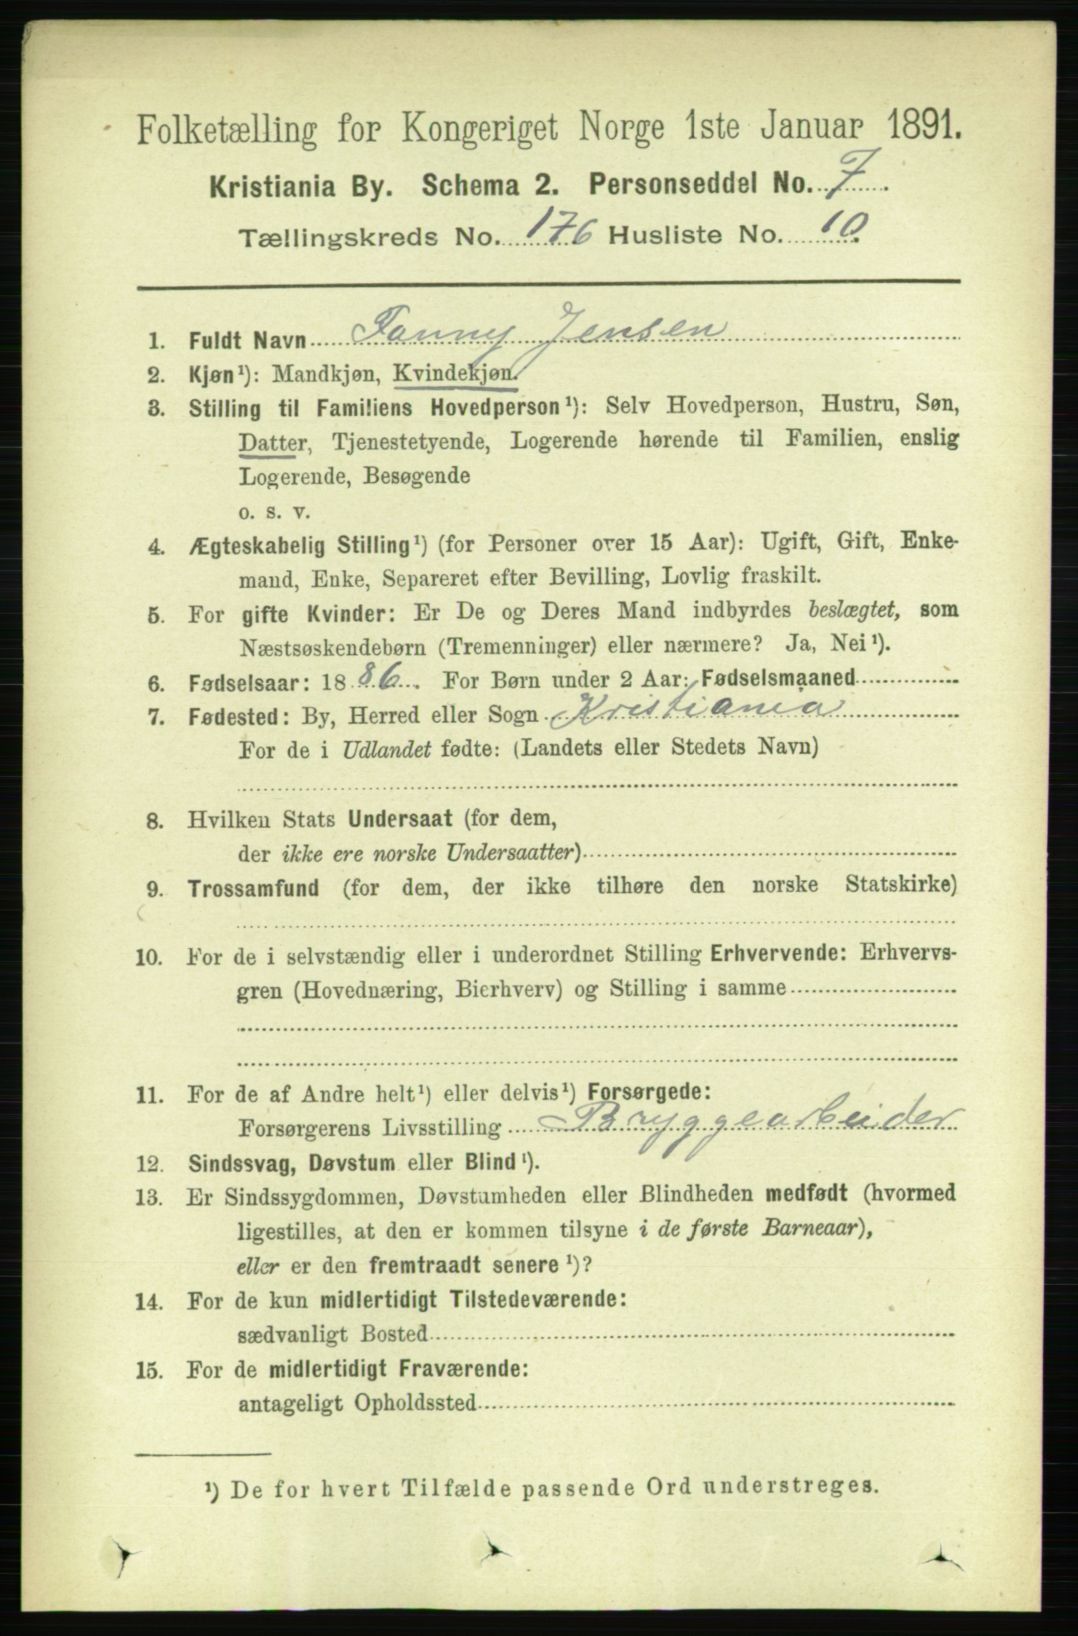 Folketælling for Kongeriget Norge 1ste Januar 1891.
Kristiania By. Schema 2. Personseddel No. 7.
Tællingskreds No. 176 Husliste No. 10.
1. Fuldt Navn Fanny Jensen
2. Kjøn¹): Mandkjøn, Kvindekjøn.
3. Stilling til Familiens Hovedperson¹): Selv Hovedperson, Hustru, Søn,
Datter, Tjenestetyende, Logerende hørende til Familien, enslig
Logerende, Besøgende
o. s. v.
4. Ægteskabelig Stilling¹) (for Personer over 15 Aar): Ugift, Gift, Enke-
mand, Enke, Separeret efter Bevilling, Lovlig fraskilt.
5. For gifte Kvinder: Er De og Deres Mand indbyrdes beslægtet, som
Næstsøskendebørn (Tremenninger) eller nærmere? Ja, Nei¹).
6. Fødselsaar: 1886. For Børn under 2 Aar: Fødselsmaaned
7. Fødested: By, Herred eller Sogn Kristiania
For de i Udlandet fødte: (Landets eller Stedets Navn)
8. Hvilken Stats Undersaat (for dem,
der ikke ere norske Undersaatter)
9. Trossamfund (for dem, der ikke tilhøre den norske Statskirke)
10. For de i selvstændig eller i underordnet Stilling Erhvervende: Erhvervs-
gren (Hovednæring, Bierhverv) og Stilling i samme
11. For de af Andre helt¹) eller delvis¹) Forsørgede:
Forsørgerens Livsstilling Bryggearbeider
12. Sindssvag, Døvstum eller Blind¹).
13. Er Sindssygdommen, Døvstumheden eller Blindheden medfødt (hvormed
ligestilles, at den er kommen tilsyne i de første Barneaar),
eller er den fremtraadt senere¹)?
14. For de kun midlertidigt Tilstedeværende:
sædvanligt Bosted
15. For de midlertidigt Fraværende:
antageligt Opholdssted
¹) De for hvert Tilfælde passende Ord understreges.